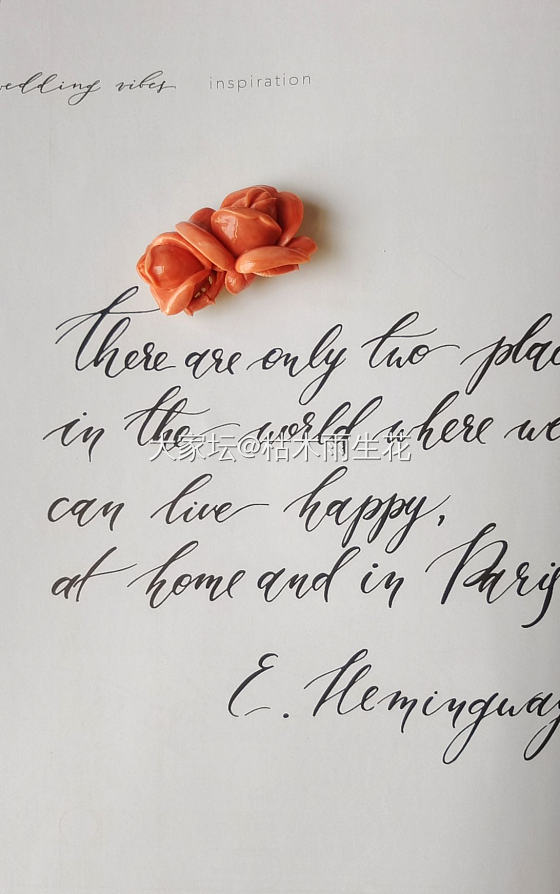 wedding vibes inspiration
There are only two plac
in the world where we
大家坛@枯木雨生花
can live happy,
at home and in Paris
E. Hemingway